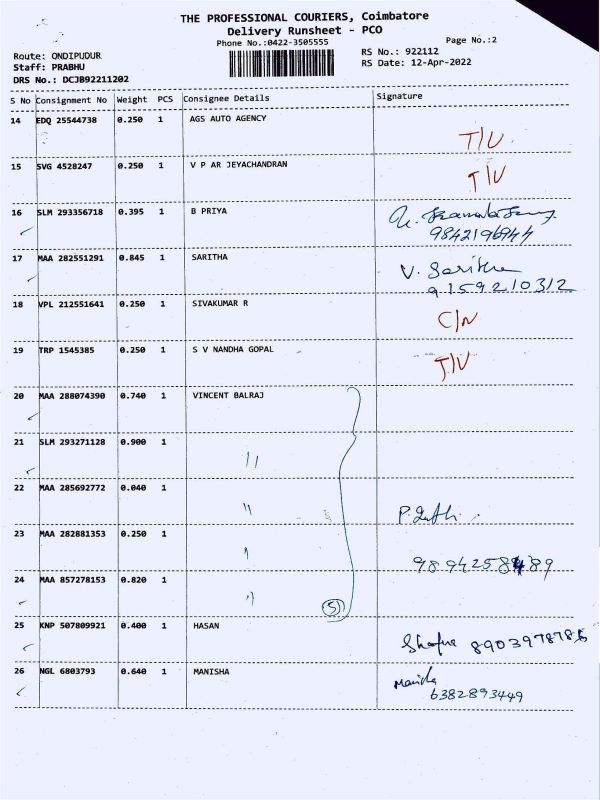 THE PROFESSIONAL COURIERS, Coimbatore
Delivery Runsheet - PCO
Phone No.:0422-3505555
Page No.:2
Route: ONDIPUDUR
Staff: PRABHU
DRS No.: DCJB92211202
RS No.: 922112
RS Date: 12-Apr-2022
S No Consignment No Weight PCS Consignee Details Signature
14 EDQ 25544738 0.250 1 AGS AUTO AGENCY
T/U
15 SVG 4528247 0.250 1 V P AR JEYACHANDRAN
T/U
16 SLM 293356718 0.395 1 B PRIYA
9842196944
17 MAA 282551291 0.845 1 SARITHA
V. Saritha
9159210312
18 VPL 212551641 0.250 1 SIVAKUMAR R
C/N
19 TRP 1545385 0.250 1 S V NANDHA GOPAL
T/U
20 MAA 288074390 0.740 1 VINCENT BALRAJ
21 SLM 293271128 0.900 1 "
22 MAA 285692772 0.040 1 "
23 MAA 282881353 0.250 1 "
24 MAA 857278153 0.820 1 "
5
25 KNP 507809921 0.400 1 HASAN
26 NGL 6803793 0.640 1 MANISHA
6382893449